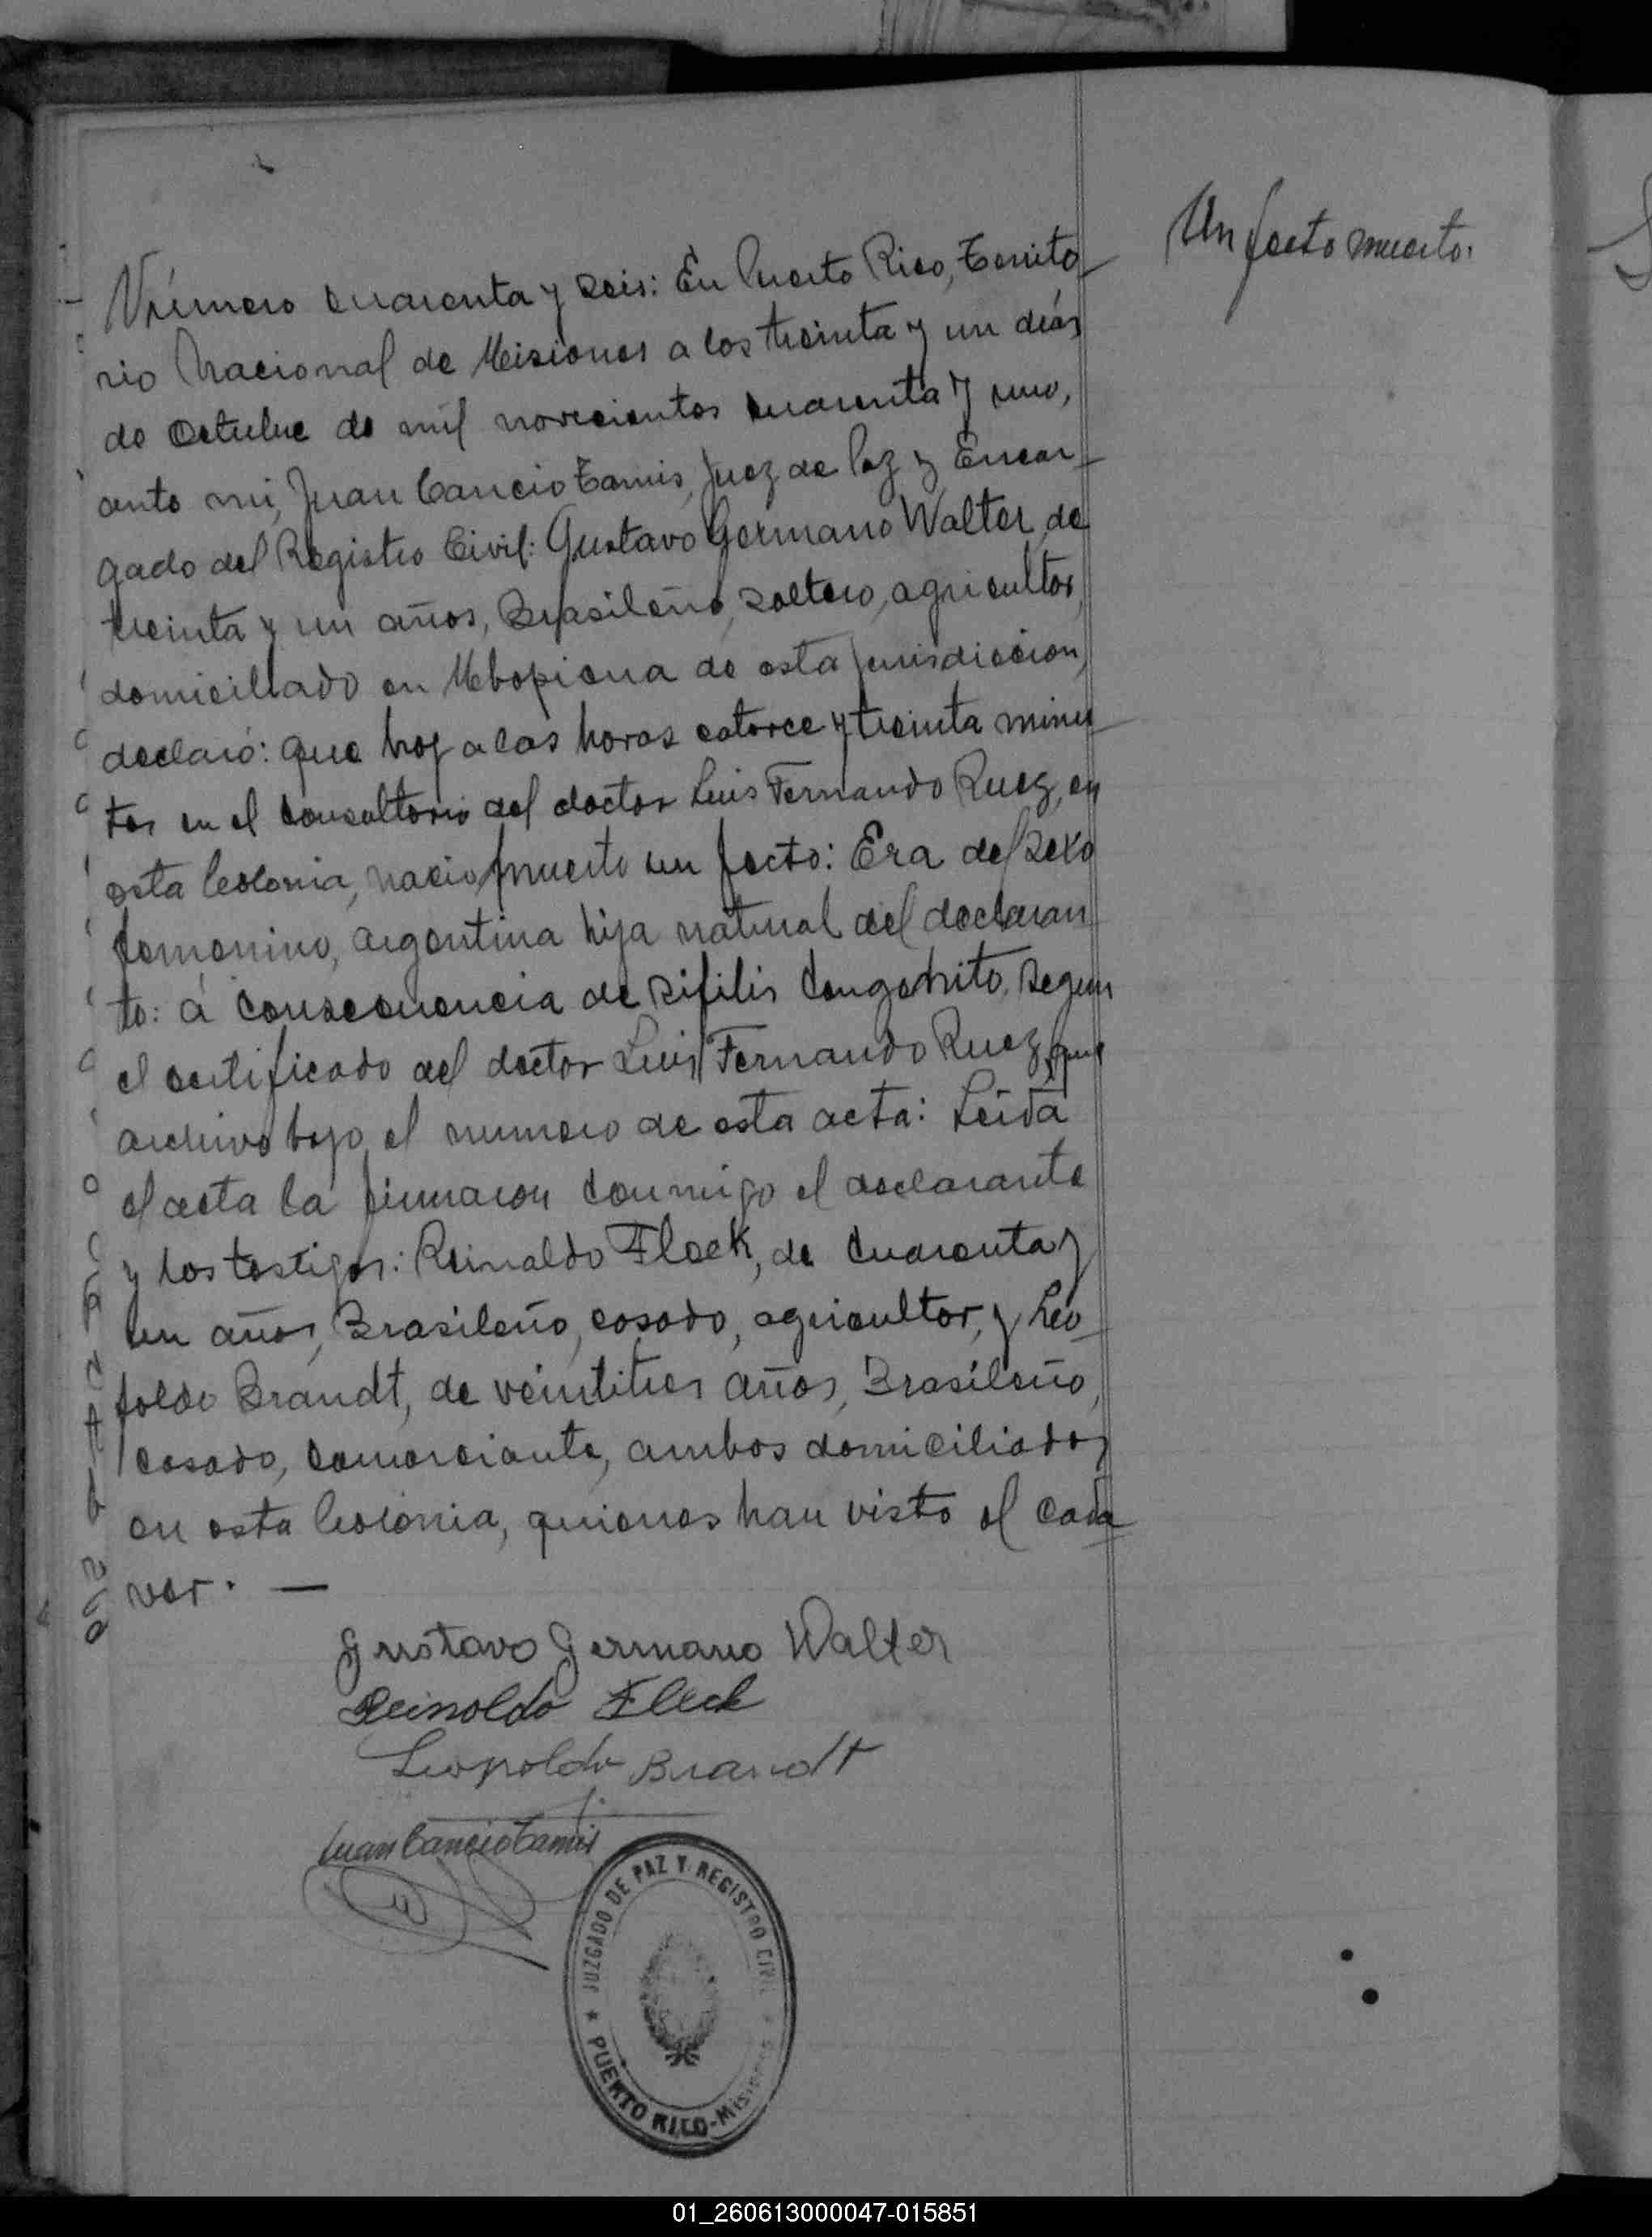 Un feeto muerto.
Número cuarenta y seis: En Puerto Rico, Territo-
rio Nacional de Misiones a los treinta y un dias
de Octubre de mil novecientos cuarenta y uno,
ante mi, Juan Cancio Tamis, Juez de Paz y Encar-
gado del Registro Civil: Gustavo Germano Walter, de
treinta y un años, Brasileño, soltero, agricultor,
domiciliado en Mbopicua de esta jurisdiccion,
declaró: que hoy a las horas catorce y treinta minu-
tos en el consultorio del doctor Luis Fernando Ruez, en
esta Colonia, nacio muerto un feeto: Era del sexo
femenino, argentina hija natural del declaran
te: á consecuencia de sifilis congenito, segun
el certificado del doctor Luis Fernando Ruez, que
archivo bajo el numero de esta acta: Leida
el acta la firmaron conmigo el declarante
y los testigos: Reinaldo Fleck, de cuarenta y
un años, Brasileño, casado, agricultor, y Leo-
poldo Brandt, de veintitres años, Brasileño,
casado, comerciante, ambos domiciliados
en esta Colonia, quienes han visto el cada-
ver. —
Gustavo Germano Walter
Reinoldo Fleck
Leopoldo Brandt
Juan Cancio Tamis
JUZGADO DE PAZ Y REGISTRO CIVIL
PUERTO RICO - Misiones
01_260613000047-015851